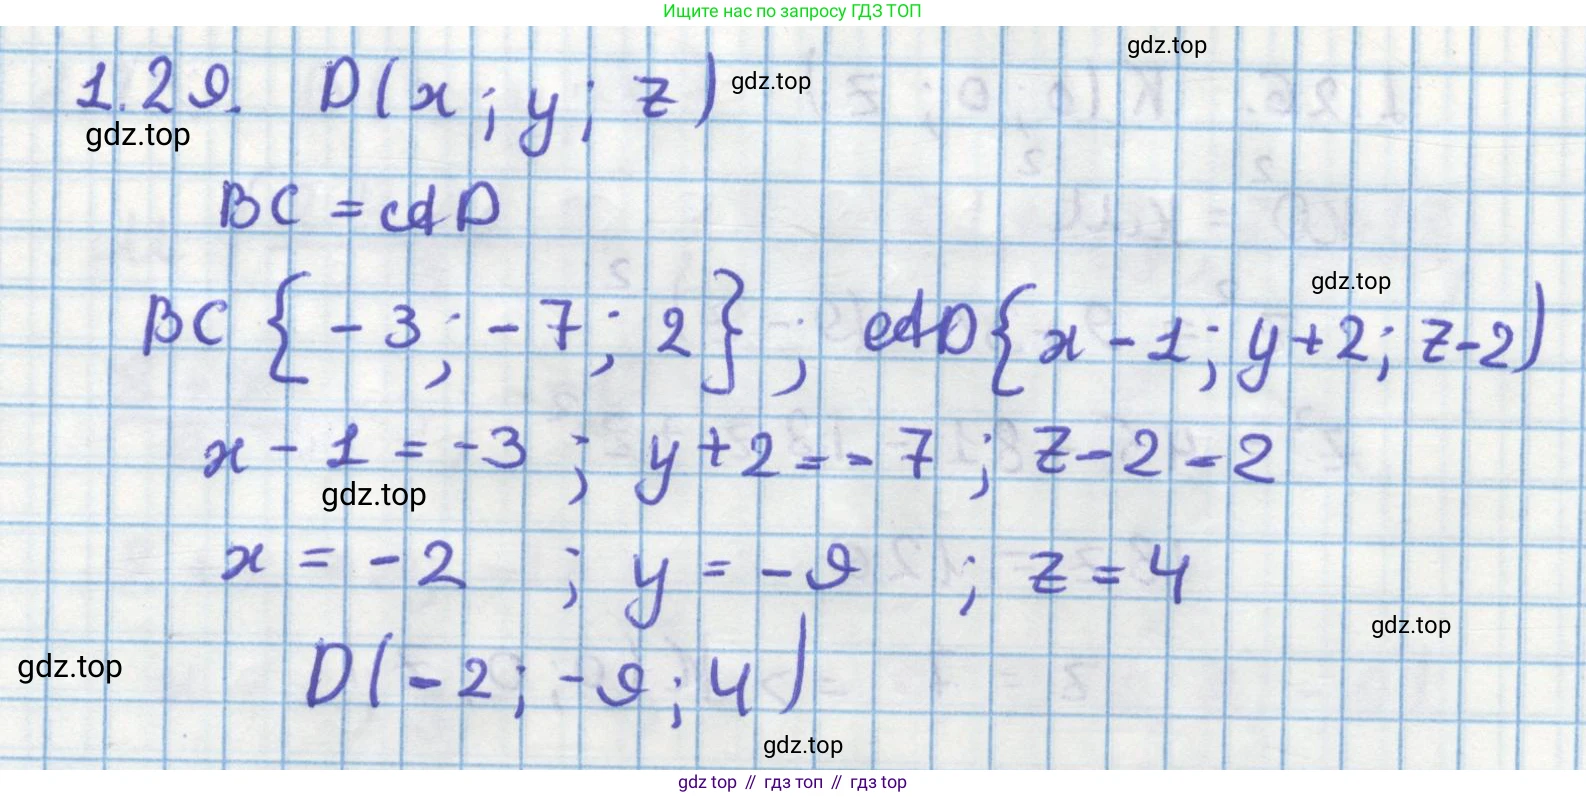 Ищите нас по запросу ГДЗ ТОП
gdz.top
1.29. D(x; y; z)
gdz.top
gdz.top
BC = AD
gdz.top
BC {-3; -7; 2}; AD{x-1; y+2; z-2)
x - 1 = -3; y + 2 = -7; z - 2 = 2
gdz.top
x = -2; y = -9; z = 4
gdz.top
gdz.top
D(-2; -9; 4)
gdz.top
gdz top // гдз топ // гдз top